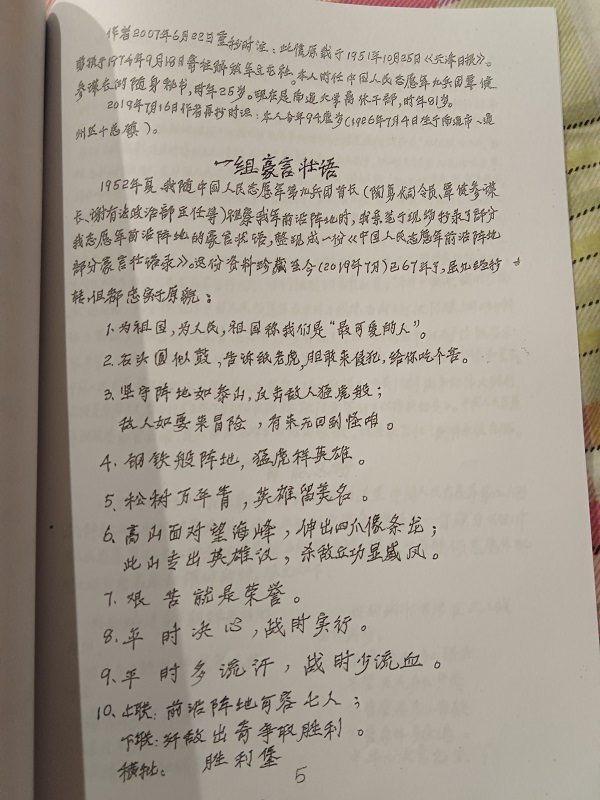 作者2007年6月22日重抄时注：此信原载于1951年10月25日《天津日报》。
剪报于1974年9月18日寄往解放军画报社。本人时任中国人民志愿军九兵团覃健
参谋长的随身秘书，时年25岁。现在是南通大学离休干部，时年81岁。
2019年7月16日作者再抄时注：本人今年94虚岁（1926年7月4日生于南通市、通
州区十总镇）。
一组豪言壮语
1952年夏，我随中国人民志愿军第九兵团首长（陶勇代司令员、覃健参谋
长、谢有法政治部主任等）视察我军前沿阵地时，我亲笔于现场抄录了部分
我志愿军前沿阵地的豪言壮语，整理成一份《中国人民志愿军前沿阵地
部分豪言壮语录》。这份资料珍藏至今（2019年7月）已67年了，虽几经抄
转，但都忠实于原貌：
1.为祖国，为人民，祖国称我们是“最可爱的人”。
2.石头圆似鼓，告诉纸老虎，胆敢来侵犯，给你吃个苦。
3.坚守阵地如泰山，反击敌人猛虎般；
敌人如要来冒险，有来无回别怪咱。
4.钢铁般阵地，猛虎样英雄。
5.松树万年青，英雄留美名。
6.高山面对望海峰，伸出四爪像条龙；
此山专出英雄汉，杀敌立功显威风。
7.艰苦就是荣誉。
8.平时决心，战时实行。
9.平时多流汗，战时少流血。
10.上联：前沿阵地可容七人；
下联：歼敌出奇争取胜利。
横批：胜利堡
5